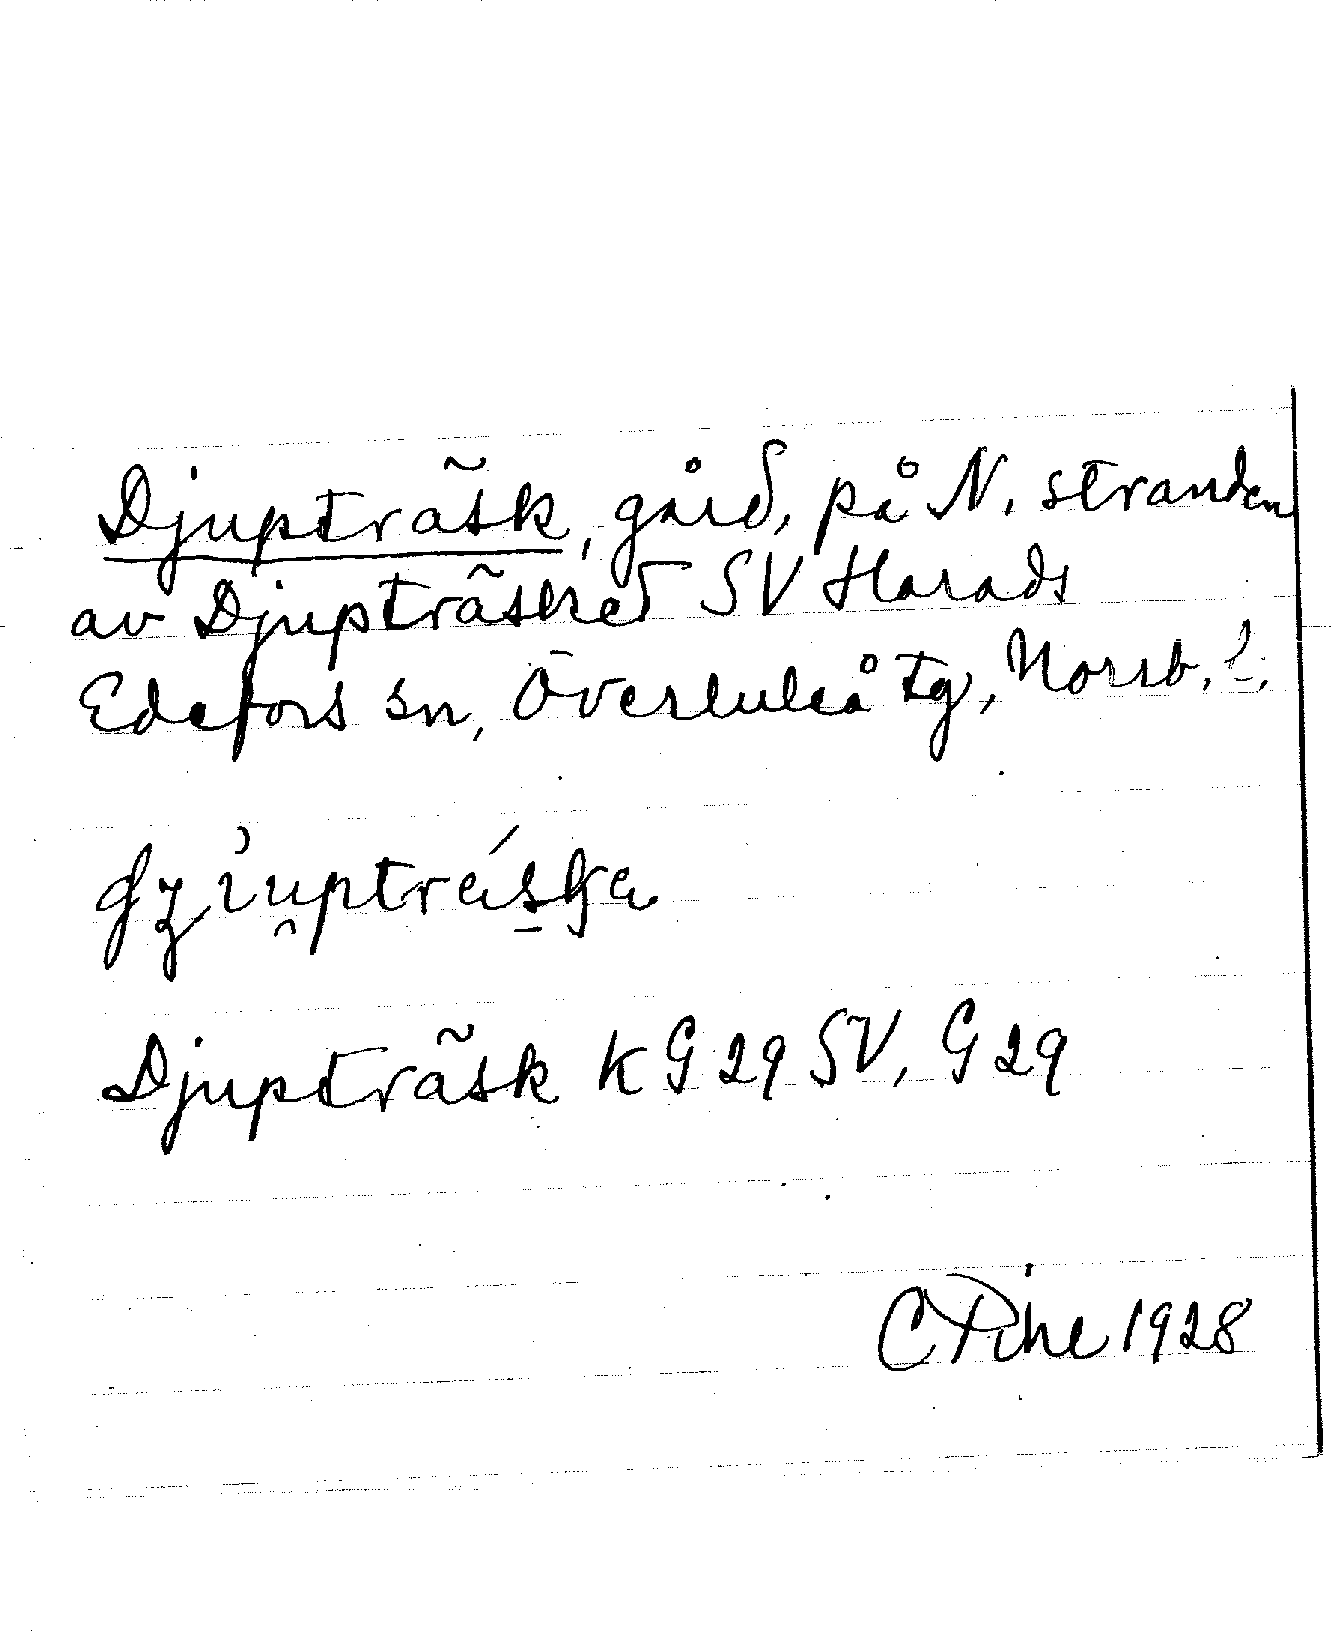 Djupträsk, gård, på N. stranden
av Djupträsket SV Harads
Edefors sn, Överluleå tg, Norrb. l.
Djupträsk KG29SV, G29
C Pihl 1928